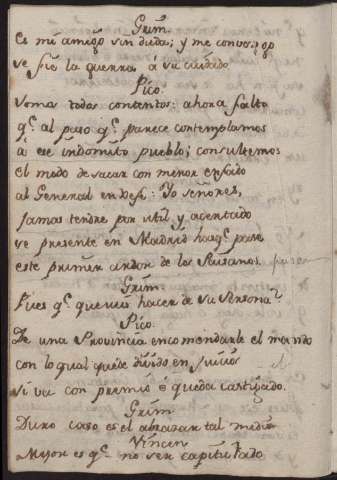 Grim.
Es mi amigo sin duda; y me convengo
se fie la guerra á su cuidado
Pico.
Somos todos contentos: ahora falta
q.e al paso q.e parece contemplamos
á ese indomito pueblo; consultemos
el modo de sacar con menor enfado
al General en Xefe: Yo señores,
jamas tendre por util y acertado
se presente en Madrid hasq.e pase
este primer ardor de los Paisanos.
Grim.
Pues q.e quereis hacer de su Persona?
Pico.
De una Provincia encomendarle el mando
con lo qual quede dudoso en juicios
si va con premio ó queda castigado.
Grim.
Duro caso es el abrazar tal medio
Vincen.
Mejor es q.e no ser capitulado